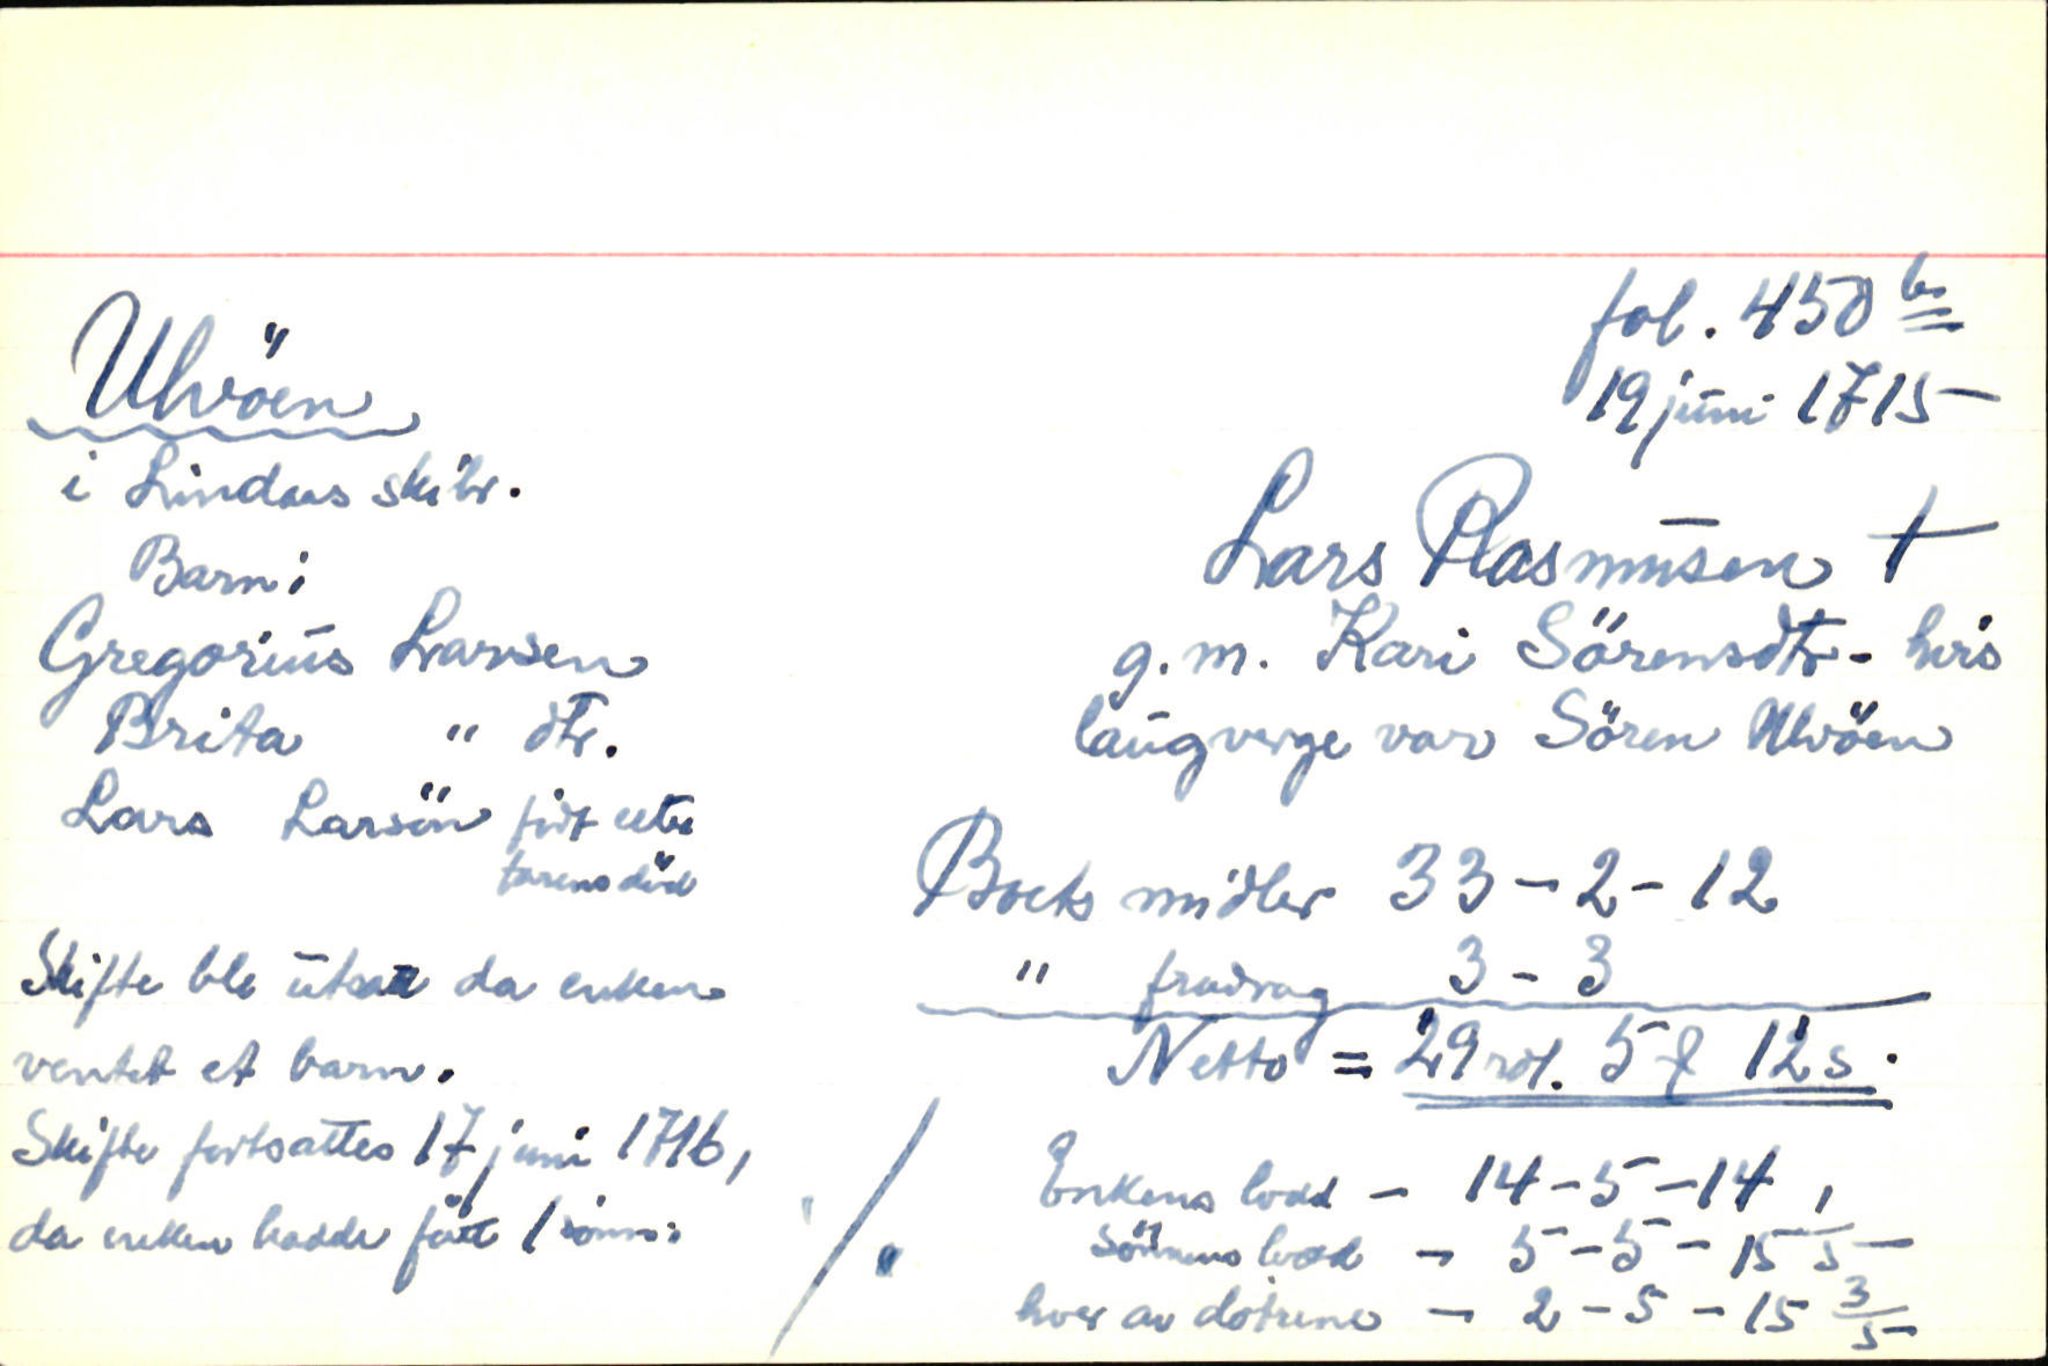 Ulvöen
i Lindaas skibr.
Barn:
Gregorius Larsen
Brita " dtr.
Lars Larsön föt etter
farens död
Skifte ble utsatt da enken
ventet et barn.
Skifte fortsattes 17 juni 1716,
da enken hadde fått 1 sönn:
fol. 450 b
19 juni 1715
Lars Rasmusen †
g.m. Kari Sörensdtr - hvis
laugverge var Sören Ulvöen
Boets midler 33-2-12
" fradrag 3-3
Netto = 29 rdl. 5 f 12 s.
Enkens lodd - 14-5-14
Sönnens lodd - 5-5-15 1/5
hver av dötrene - 2-5-15 3/5
/.